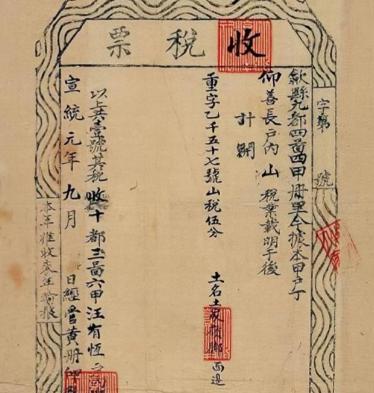 收稅票
字第 號
歙縣九都四啚四甲冊里 今據本甲戶丁
仰善長戶內 山 稅業載明于後
計開
重字乙千五十七號山稅伍分
土名土 西邊
以上共壹號其稅收十都三啚六甲汪有恆
宣統元年九月 日經管黃冊
本年推收